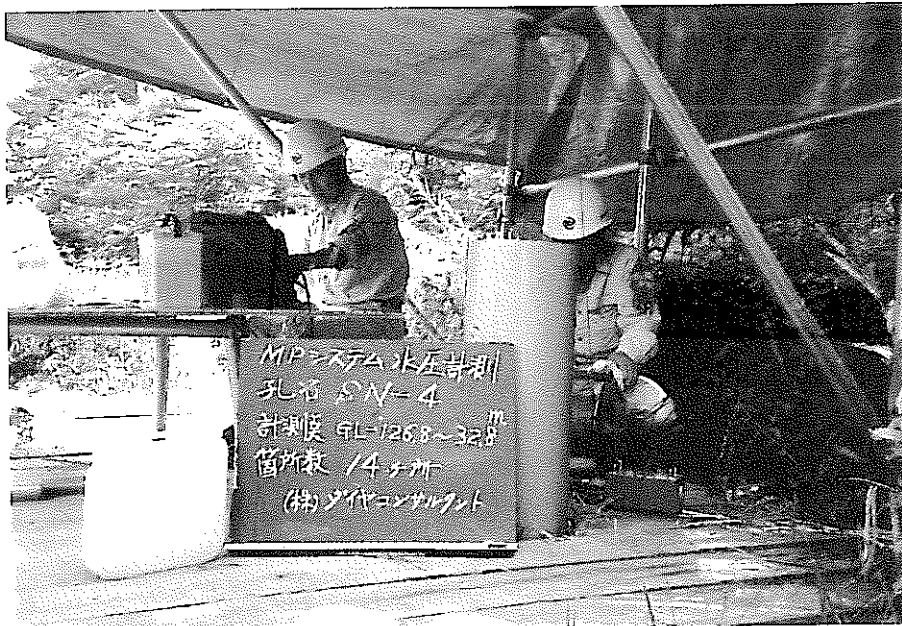 MPシステム水圧計測
孔名 SN-4
計測深 GL-126.8~32.8m
箇所数 14ヶ所
(株)ダイヤコンサルタント